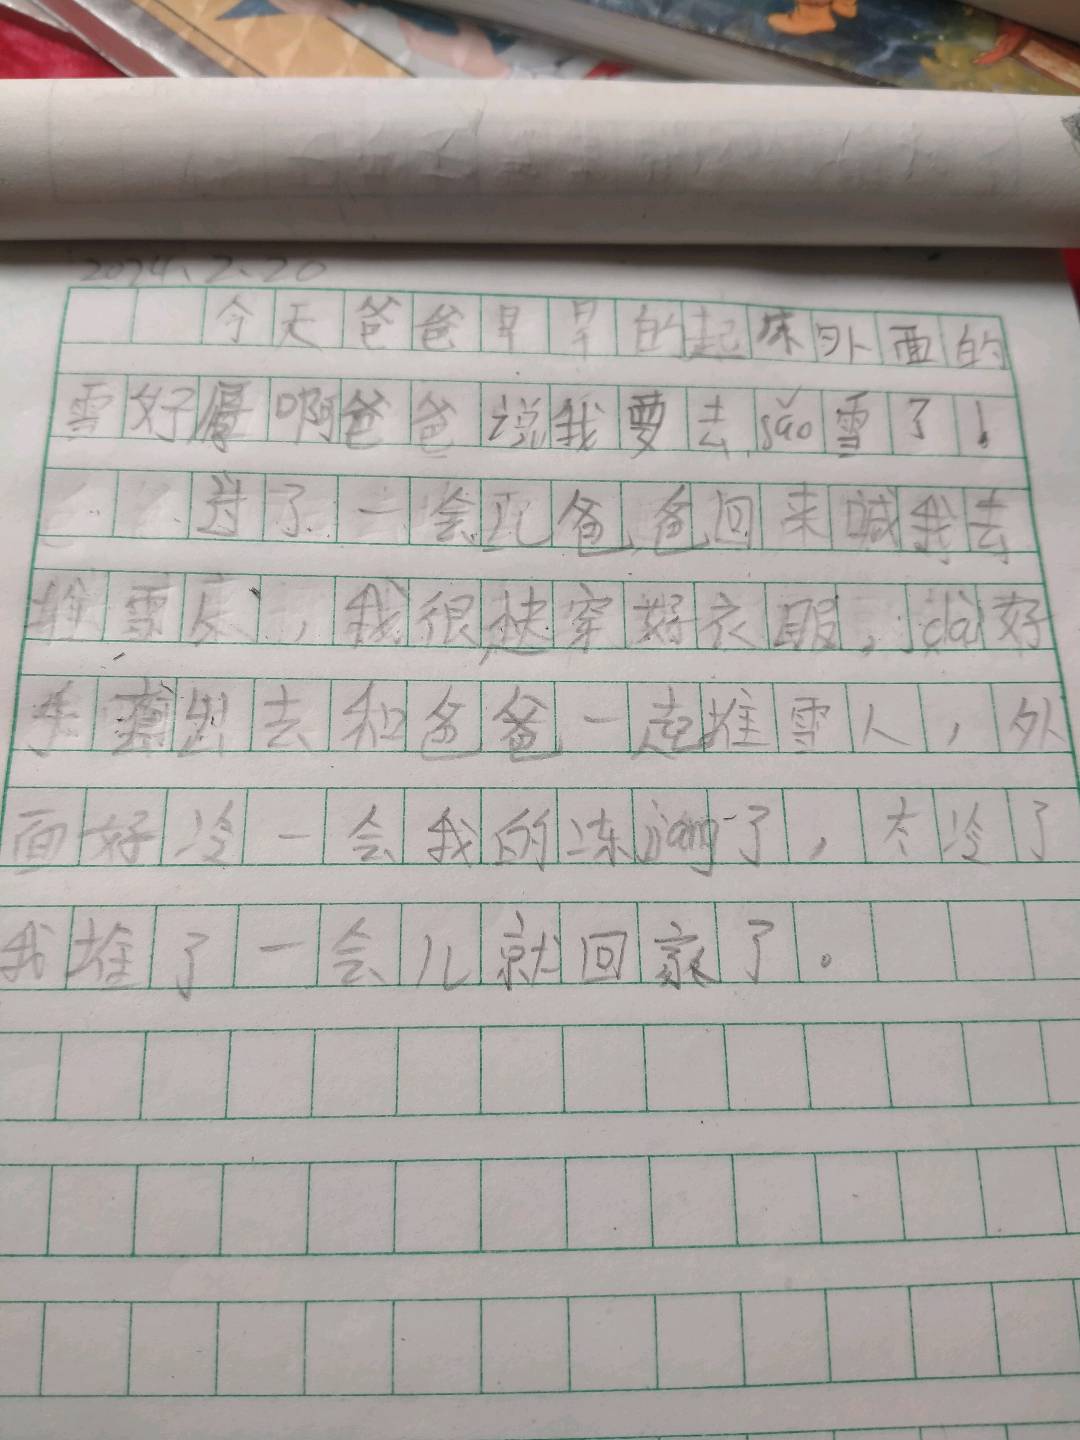 2024.2.20
今天爸爸早早的起床外面的
雪好厚啊爸爸说我要去sǎo雪了！
过了一会儿爸爸回来喊我去
堆雪人，我很快穿好衣服，dài好
手套出去和爸爸一起堆雪人，外
面好冷一会我的冻jiāng了，太冷了
我堆了一会儿就回家了。